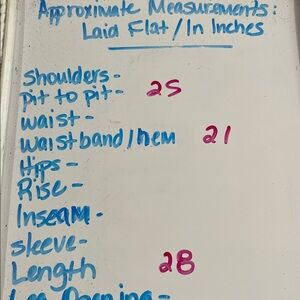 Approximate Measurements:
Laid Flat/In Inches
Shoulders-
pit to pit- 25
waist-
waistband/hem 21
Hips-
Rise-
Inseam-
sleeve-
Length 28
Leg Opening-